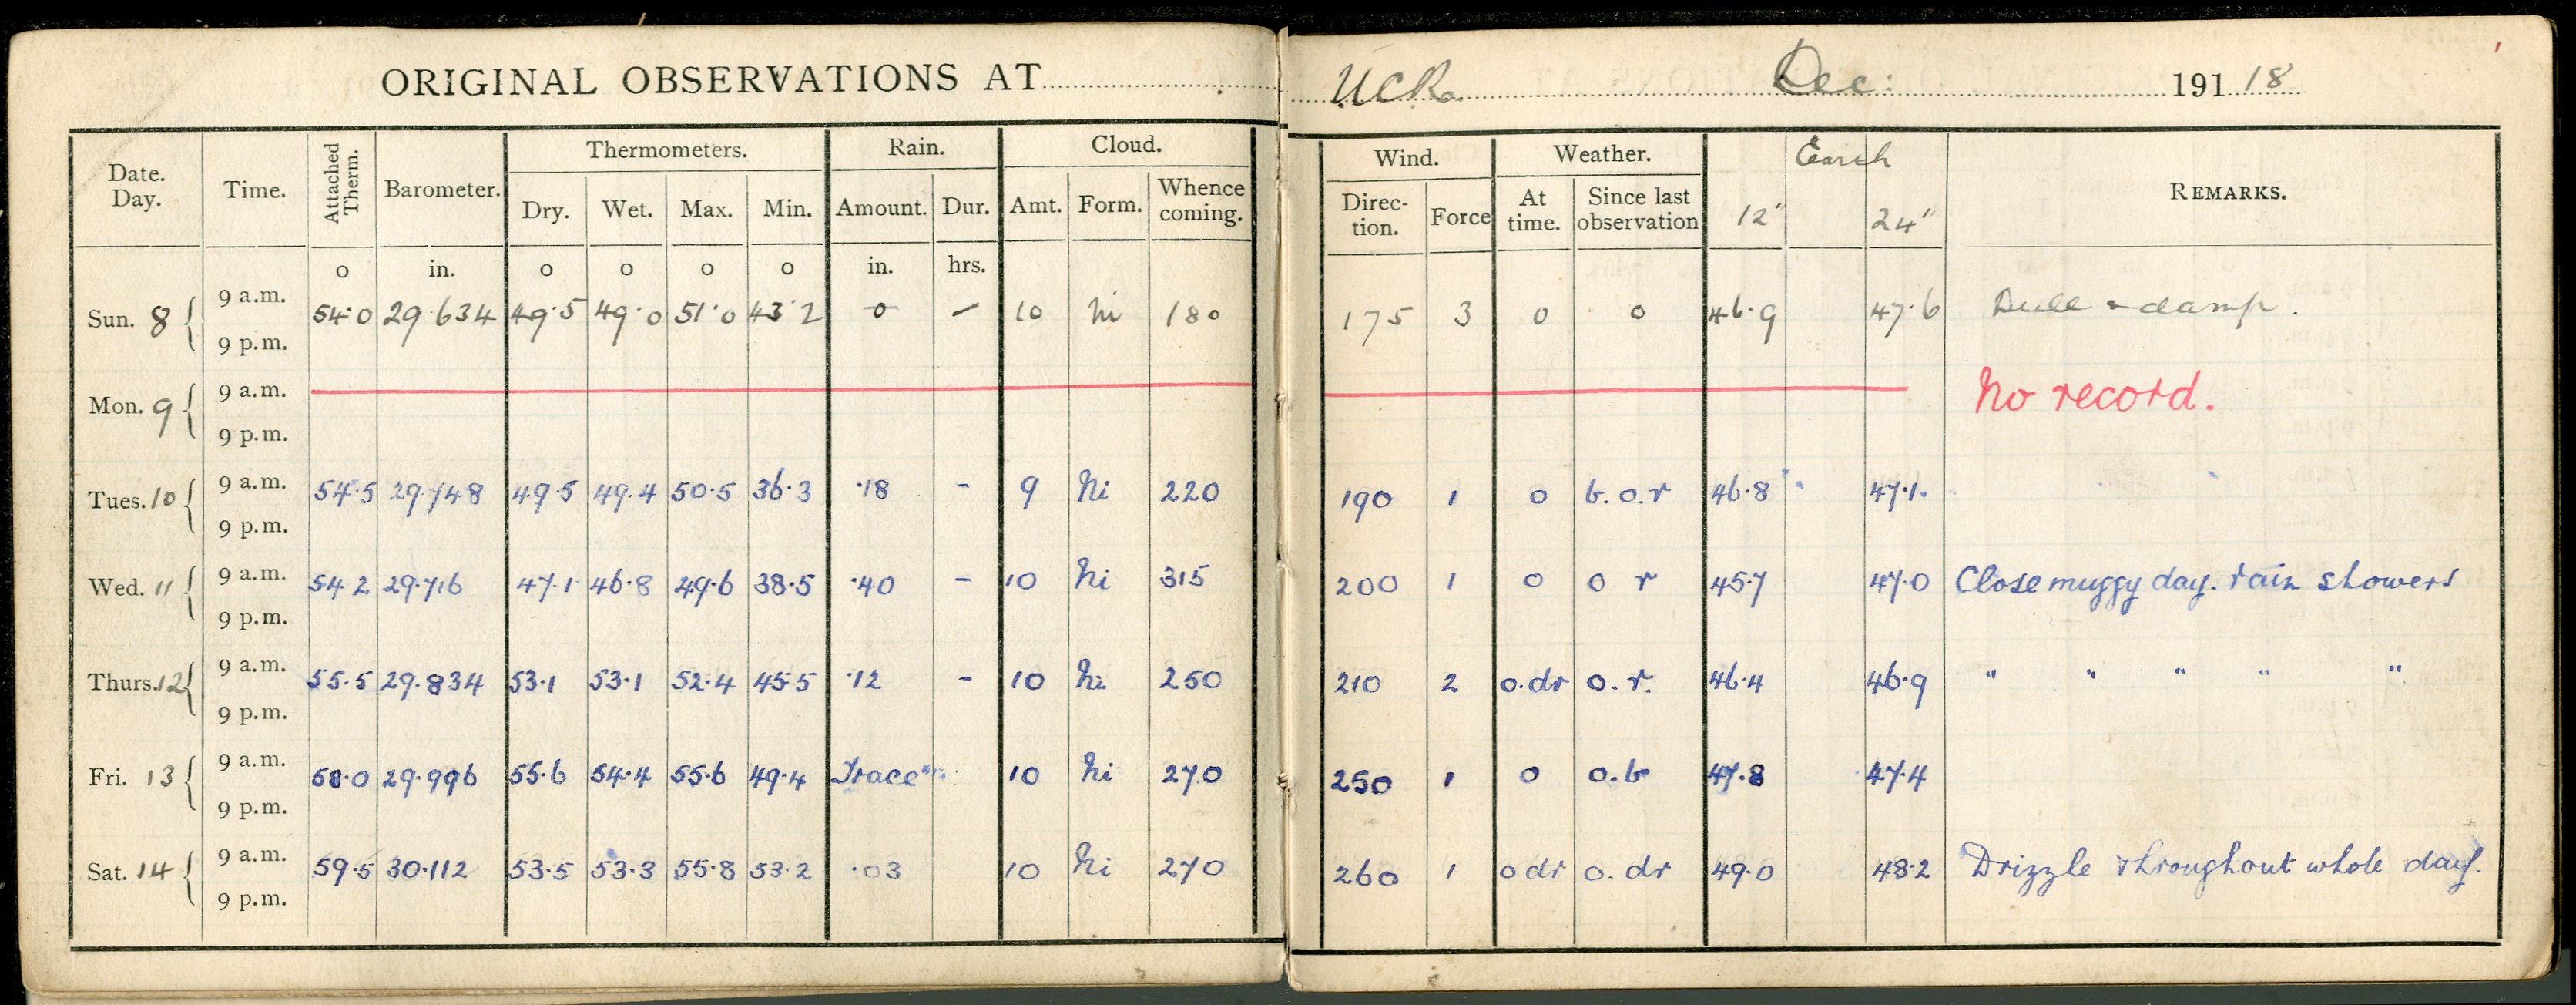 ORIGINAL OBSERVATIONS AT UCR. Dec: 191 18
Date. Day. Time. Attached Therm. Barometer. Thermometers. Rain. Cloud. Wind. Weather. Earth REMARKS.
Dry. Wet. Max. Min. Amount. Dur. Amt. Form. Whence coming. Direc- tion. Force At time. Since last observation 12" 24"
o in. o o o o in. hrs.
Sun. 8 9 a.m. 54.0 29.634 49.5 49.0 51.0 43.2 0 – 10 Ni 180 175 3 0 0 46.9 47.6 Dull & damp.
9 p.m.
Mon. 9 9 a.m. No record.
9 p.m.
Tues. 10 9 a.m. 54.5 29.748 49.5 49.4 50.5 36.3 .18 – 9 Ni 220 190 1 o b.o.r 46.8 47.1
9 p.m.
Wed. 11 9 a.m. 54.2 29.716 47.1 46.8 49.6 38.5 .40 – 10 Ni 315 200 1 o o r 45.7 47.0 Close muggy day. rain showers
9 p.m.
Thurs. 12 9 a.m. 55.5 29.834 53.1 53.1 52.4 45.5 .12 – 10 Ni 250 210 2 o.dr o.r. 46.4 46.9 " " " " "
9 p.m.
Fri. 13 9 a.m. 58.0 29.996 55.6 54.4 55.6 49.4 Trace 10 Ni 270 250 1 o o.b 47.8 47.4
9 p.m.
Sat. 14 9 a.m. 59.5 30.112 53.5 53.3 55.8 53.2 .03 10 Ni 270 260 1 o dr o. dr 49.0 48.2 Drizzle throughout whole day.
9 p.m.